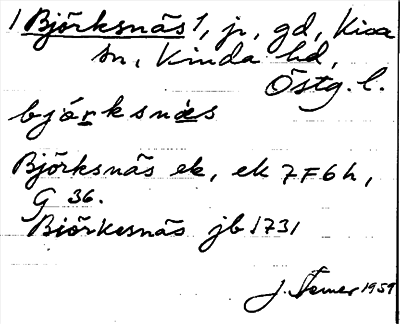 1 Björksnäs 1, jr, gd, Kisa
sn, Kinda hd,
Östg. l.
bjórksnæ̀s
Björksnäs ek, ek 7F6h,
G 36.
Biörkesnäs jb 1731
J. 1959